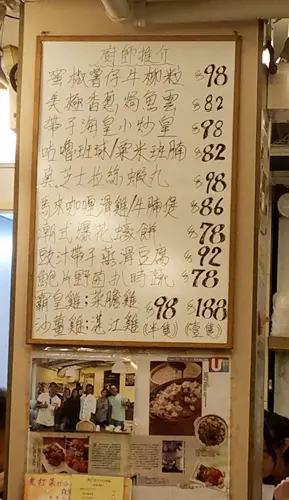 廚師推介
蜜椒薯仔牛柳粒 $98
美極香蔥焗魚雲 $82
帶子海皇小炒皇 $98
咕嚕班球/粟米班腩 $82
芝士拉絲蝦丸 $98
馬來咖喱滑雞/牛腩煲 $86
潮式爆花蠔餅 $78
豉汁帶子蒸滑豆腐 $92
鮑片野菌扒時蔬 $78
霸皇雞;菜膽雞 $98 $188
沙薑雞;湛江雞 (半隻) (壹隻)